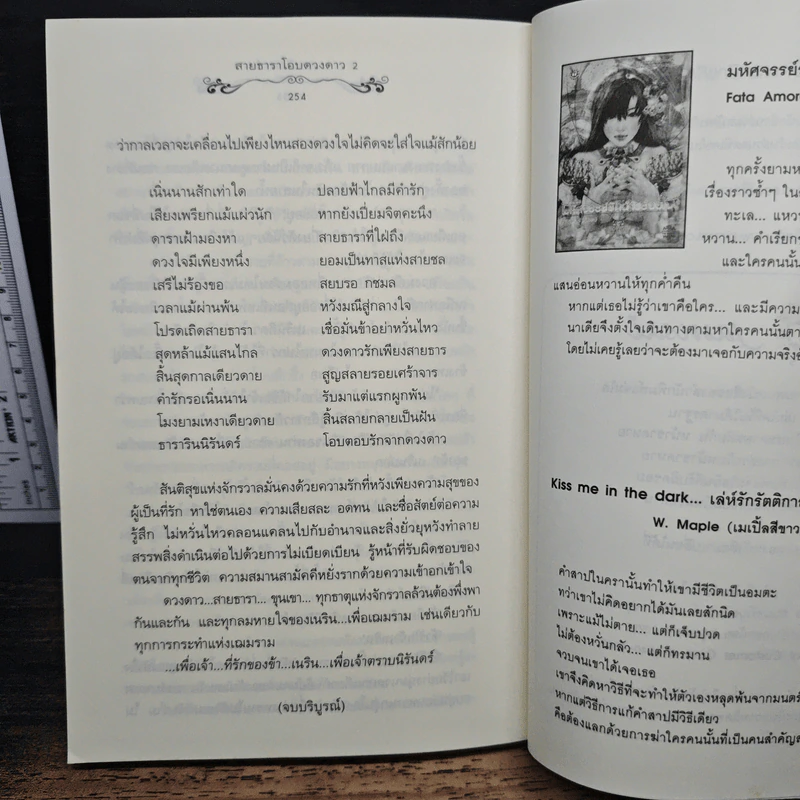 สายธาราโอบดวงดาว 2
254
ว่ากาลเวลาจะเคลื่อนไปเพียงไหนสองดวงใจไม่คิดจะใส่ใจแม้สักน้อย
เนิ่นนานสักเท่าใด ปลายฟ้าไกลมีคำรัก
เสียงเพรียกแม้แผ่วนัก หากยังเปี่ยมจิตคะนึง
ดาราเฝ้ามองหา สายธาราที่ใฝ่ถึง
ดวงใจมีเพียงหนึ่ง ยอมเป็นทาสแห่งสายชล
เสรีไม่ร้องขอ สยบรอ กชมล
เวลาแม้ผ่านพ้น หวังมณีสู่กลางใจ
โปรดเถิดสายธารา เชื่อมั่นข้าอย่าหวั่นไหว
สุดหล้าแม้แสนไกล ดวงดาวรักเพียงสายธาร
สิ้นสุดกาลเดียวดาย สูญสลายรอยเศร้าจาร
คำรักรอเนิ่นนาน รับมาแต่แรกผูกพัน
โมงยามเหงาเดียวดาย สิ้นสลายกลายเป็นฝัน
ธารารินนิรันดร์ โอบตอบรักจากดวงดาว
สันติสุขแห่งจักรวาลมั่นคงด้วยความรักที่หวังเพียงความสุขของ
ผู้เป็นที่รัก หาใช่ตนเอง ความเสียสละ อดทน และซื่อสัตย์ต่อความ
รู้สึก ไม่หวั่นไหวคลอนแคลนไปกับอำนาจและสิ่งยั่วยุหวังทำลาย
สรรพสิ่งดำเนินต่อไปด้วยการไม่เบียดเบียน รู้หน้าที่รับผิดชอบของ
ตนจากทุกชีวิต ความสมานสามัคคีหยั่งรากด้วยความเข้าอกเข้าใจ
ดวงดาว...สายธารา... ขุนเขา... ทุกธาตุแห่งจักรวาลล้วนต้องพึ่งพา
กันและกัน และทุกลมหายใจของเนริน...เพื่อเฌมราม เช่นเดียวกับ
ทุกการกระทำแห่งเฌมราม
...เพื่อเจ้า...ที่รักของข้า...เนริน...เพื่อเจ้าตราบนิรันดร์
(จบบริบูรณ์)
มหัศจรรย์
Fata Amor
ทุกครั้งยามห
เรื่องราวซ้ำๆ ใน
ทะเล... แหว
หวาน... คำเรียก
และใครคนนั้
แสนอ่อนหวานให้ทุกค่ำคืน
หากแต่เธอไม่รู้ว่าเขาคือใคร... และมีความ
นาเดียจึงตั้งใจเดินทางตามหาใครคนนั้นตา
โดยไม่เคยรู้เลยว่าจะต้องมาเจอกับความจริง
Kiss me in the dark... เล่ห์รักรัตติกา
W. Maple (เมเปิ้ลสีขาว
คำสาปในครานั้นทำให้เขามีชีวิตเป็นอมตะ
ทว่าเขาไม่คิดอยากได้มันเลยสักนิด
เพราะแม้ไม่ตาย... แต่ก็เจ็บปวด
ไม่ต้องหวั่นกลัว... แต่ก็ทรมาน
จวบจนเขาได้เจอเธอ
เขาจึงคิดหาวิธีที่จะทำให้ตัวเองหลุดพ้นจากมนตร์
หากแต่วิธีการแก้คำสาปมีวิธีเดียว
คือต้องแลกด้วยการฆ่าใครคนนั้นที่เป็นคนสำคัญ